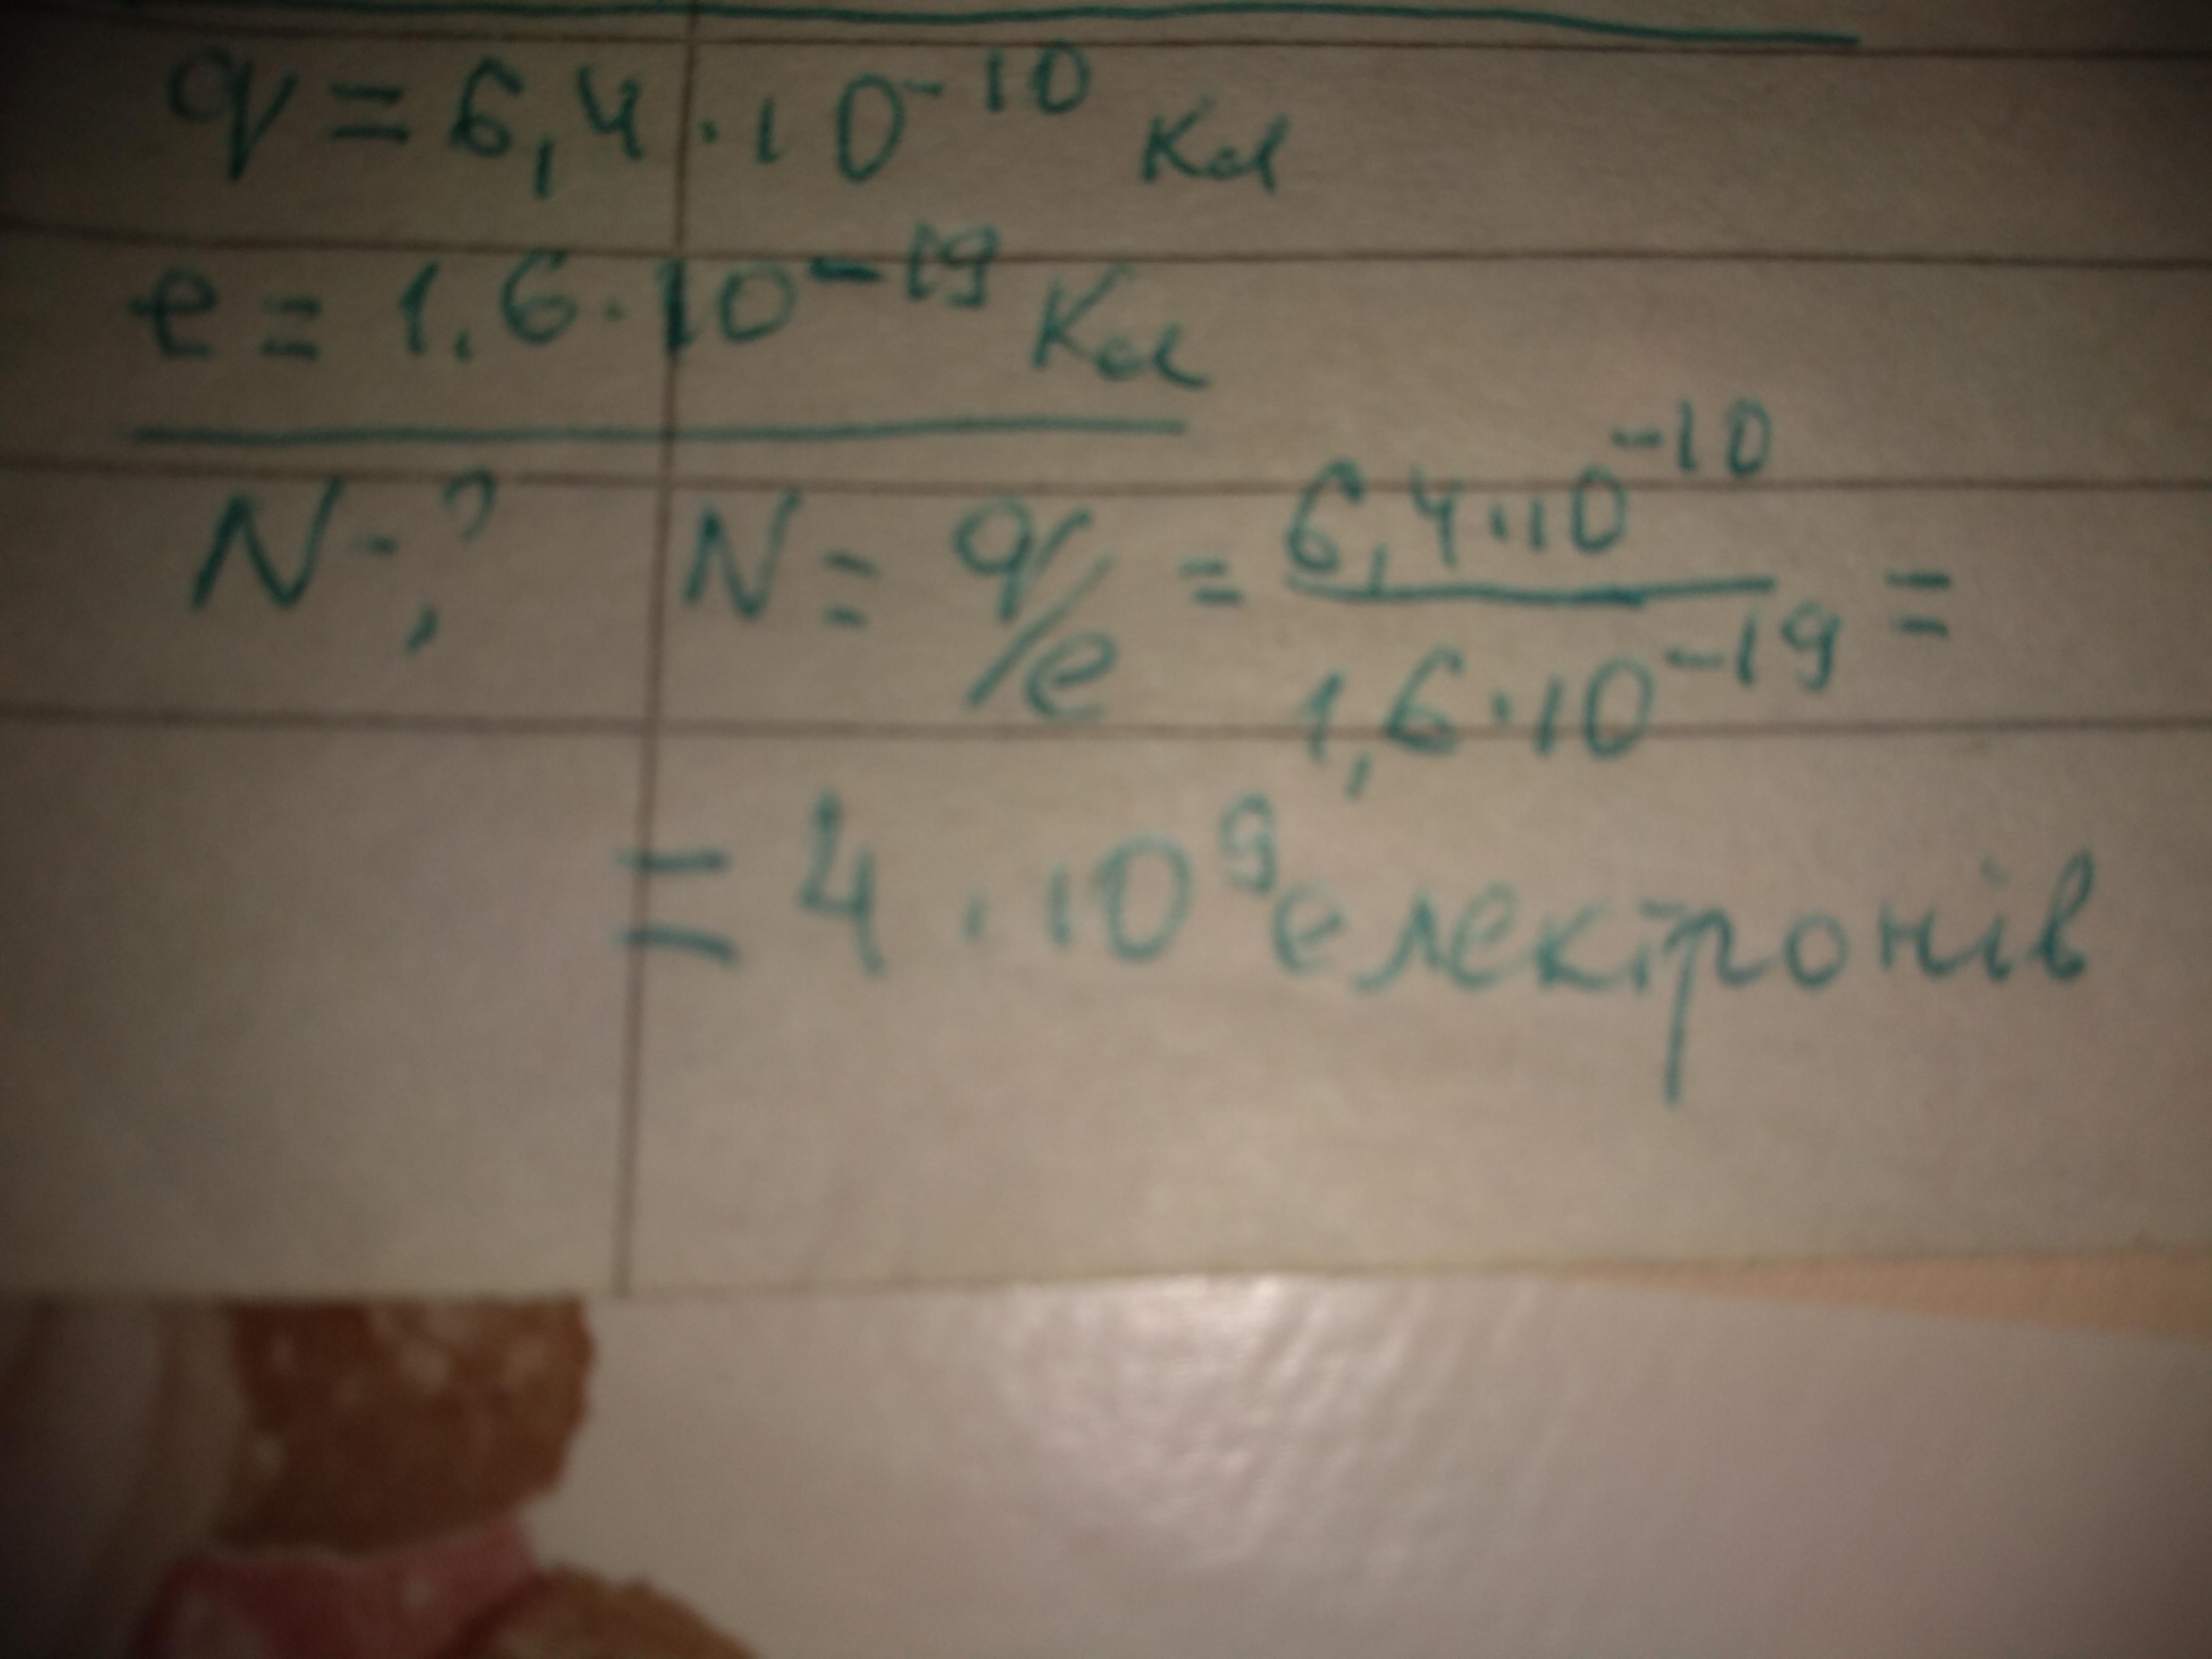 q = 6,4 · 10⁻¹⁰ Кл
e = 1,6 · 10⁻¹⁹ Кл
N - ? N = q/e = 6,4·10⁻¹⁰ / 1,6·10⁻¹⁹ =
= 4 · 10⁹ електронів